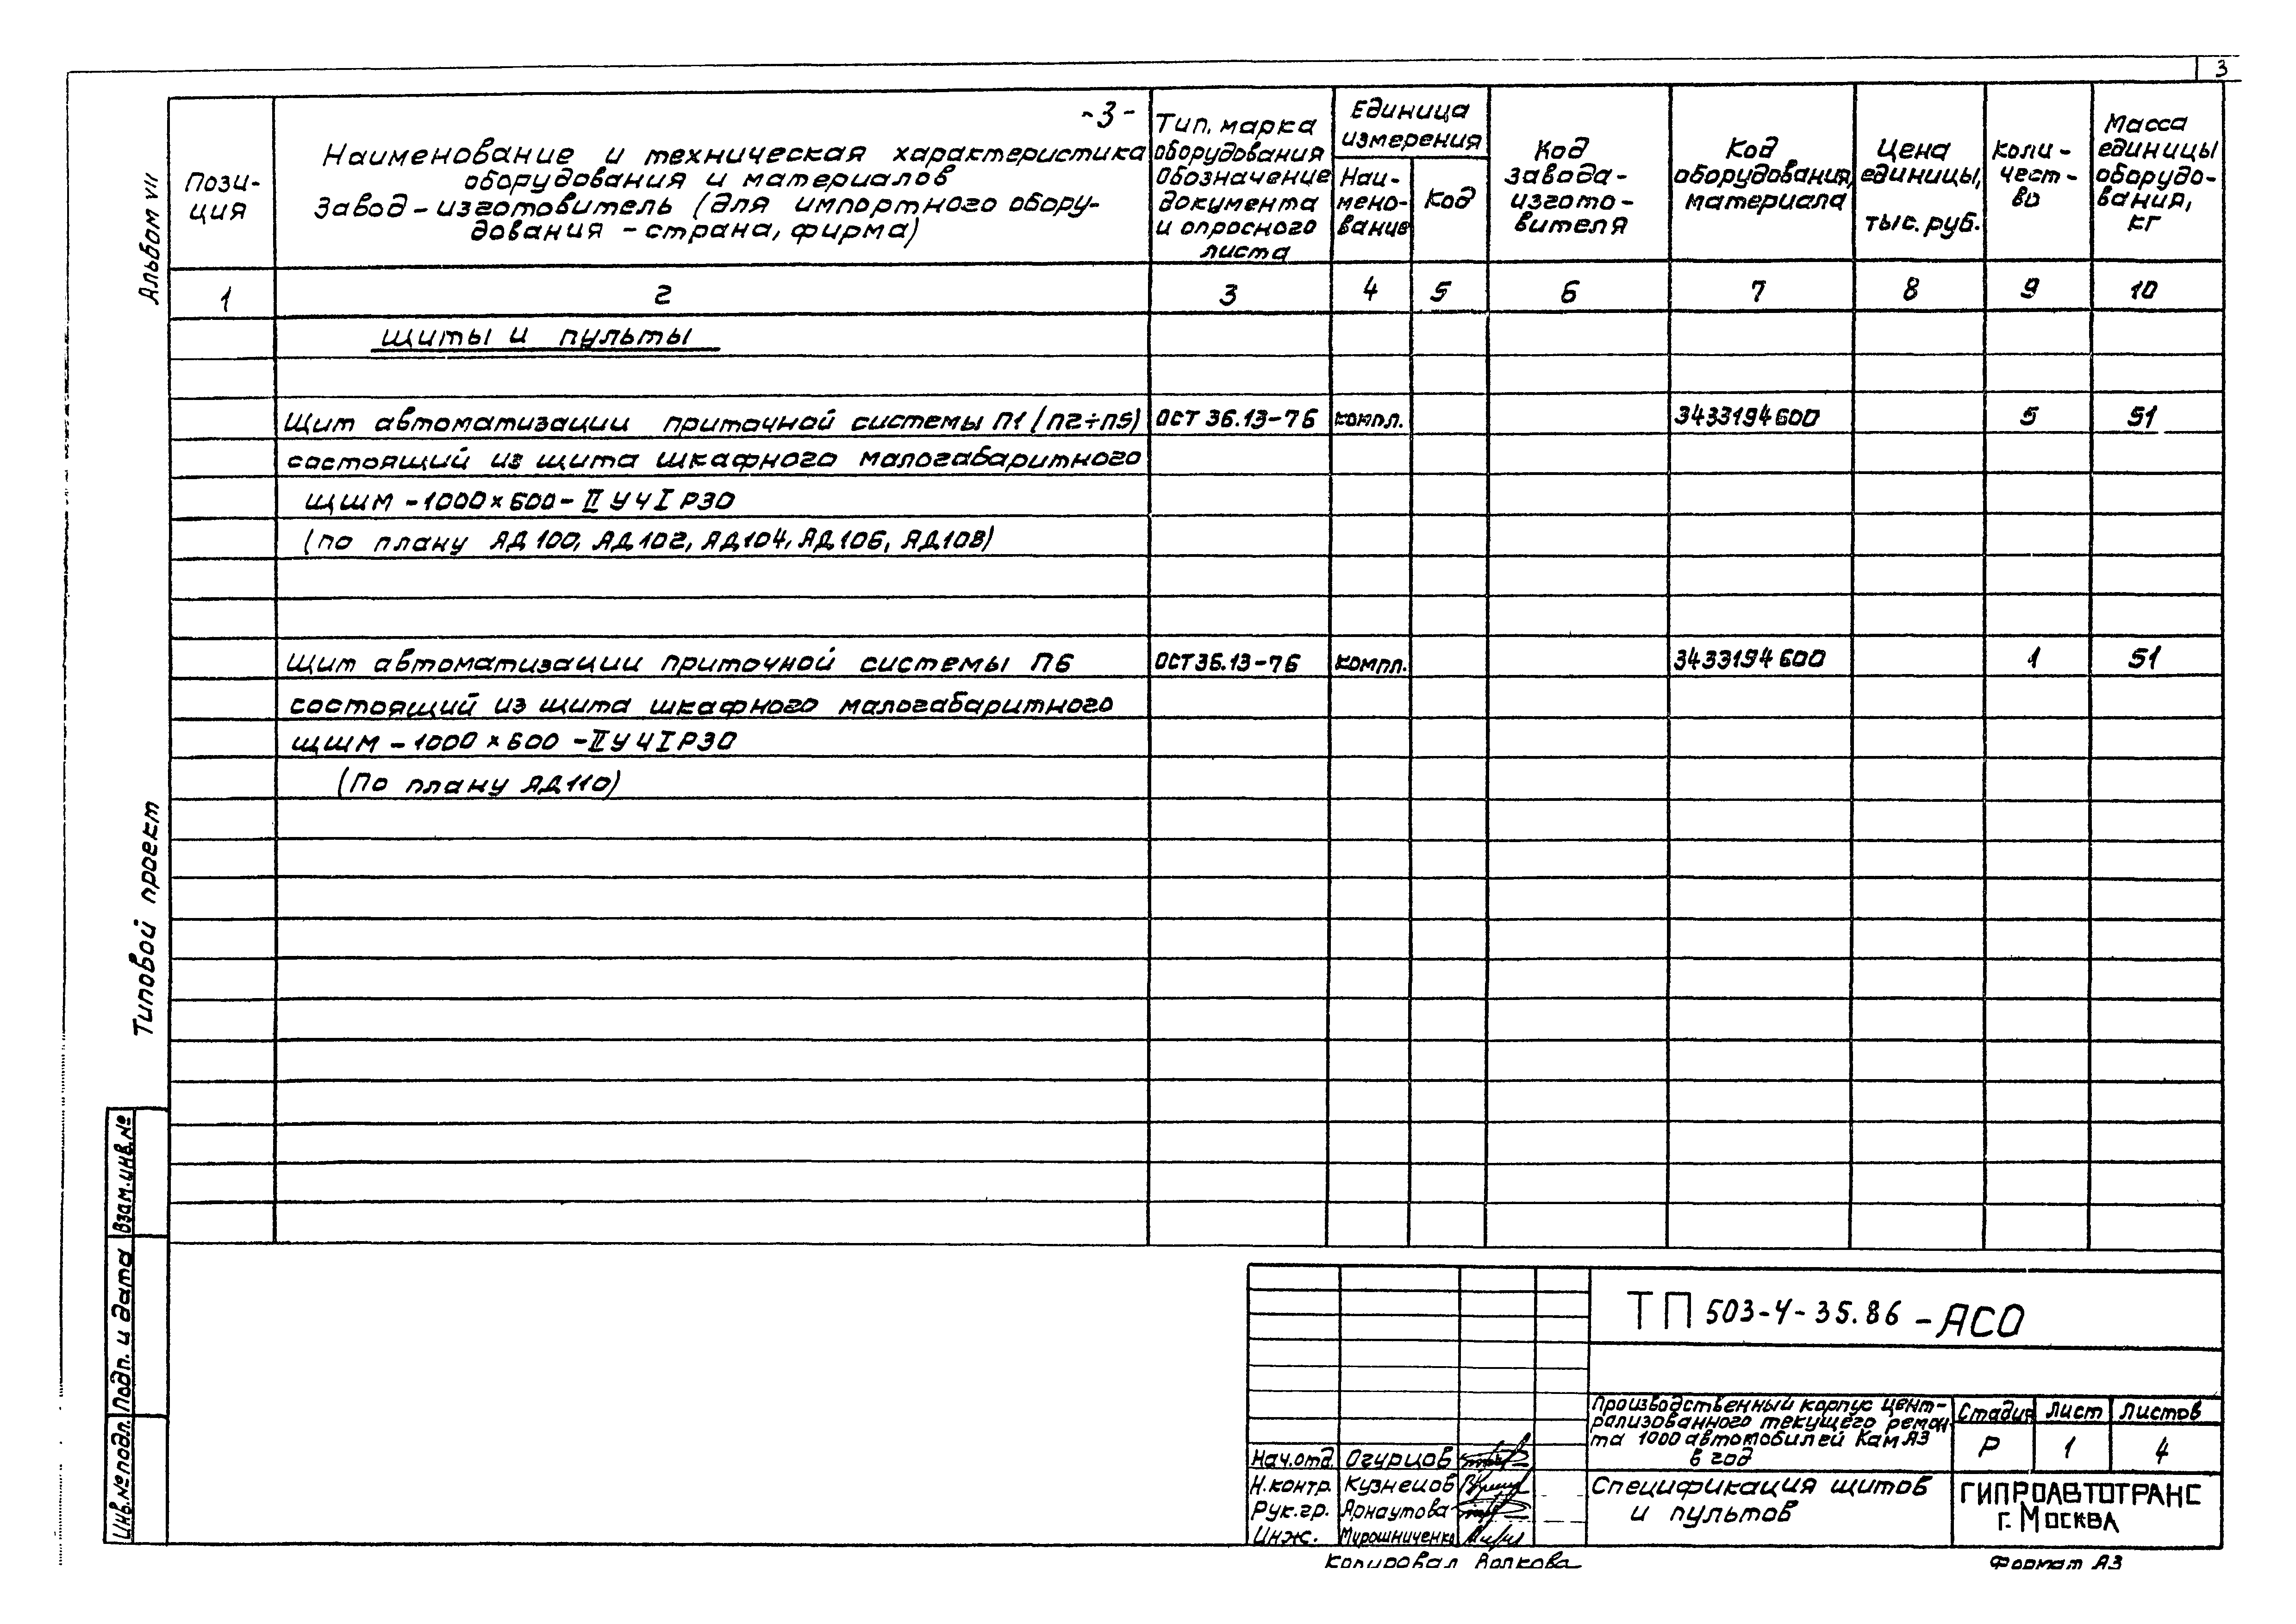 3
-3-
Альбом VII
Типовой проект
Взам.инв.№
Подп. и дата
Инв.№ подл.
Пози-
ция
Наименование и техническая характеристика
оборудования и материалов
Завод-изготовитель (для импортного обору-
дования - страна, фирма)
Тип, марка
оборудования
Обозначение
документа
и опросного
листа
Единица
измерения
Наи-
мено-
вание
Код
Код
завода-
изгото-
вителя
Код
оборудования,
материала
Цена
единицы,
тыс. руб.
Коли-
чест-
во
Масса
единицы
оборудо-
вания,
кг
1 2 3 4 5 6 7 8 9 10
Щиты и пульты
Щит автоматизации приточной системы П1 (П2÷П5) ОСТ 36.13-76 компл. 3433194600 5 51
состоящий из щита шкафного малогабаритного
ЩШМ -1000×600- II УЧ I Р30
(по плану ЯД 100, ЯД 102, ЯД 104, ЯД 106, ЯД 108)
Щит автоматизации приточной системы П6 ОСТ 36.13-76 компл. 3433194600 1 51
состоящий из щита шкафного малогабаритного
ЩШМ -1000×600 -II У Ч I Р30
(По плану ЯД 110)
ТП 503-4-35.86 -АСО
Производственный корпус цент-
рализованного текущего ремон-
та 1000 автомобилей КамАЗ
в год
Стадия Лист Листов
Р 1 4
Спецификация щитов
и пультов
ГИПРОАВТОТРАНС
г. Москва
Нач.отд. Огурцов
Н.контр. Кузнецов
Рук.гр. Арнаутова
Инж. Мирошниченко
Копировал Волкова
Формат А3